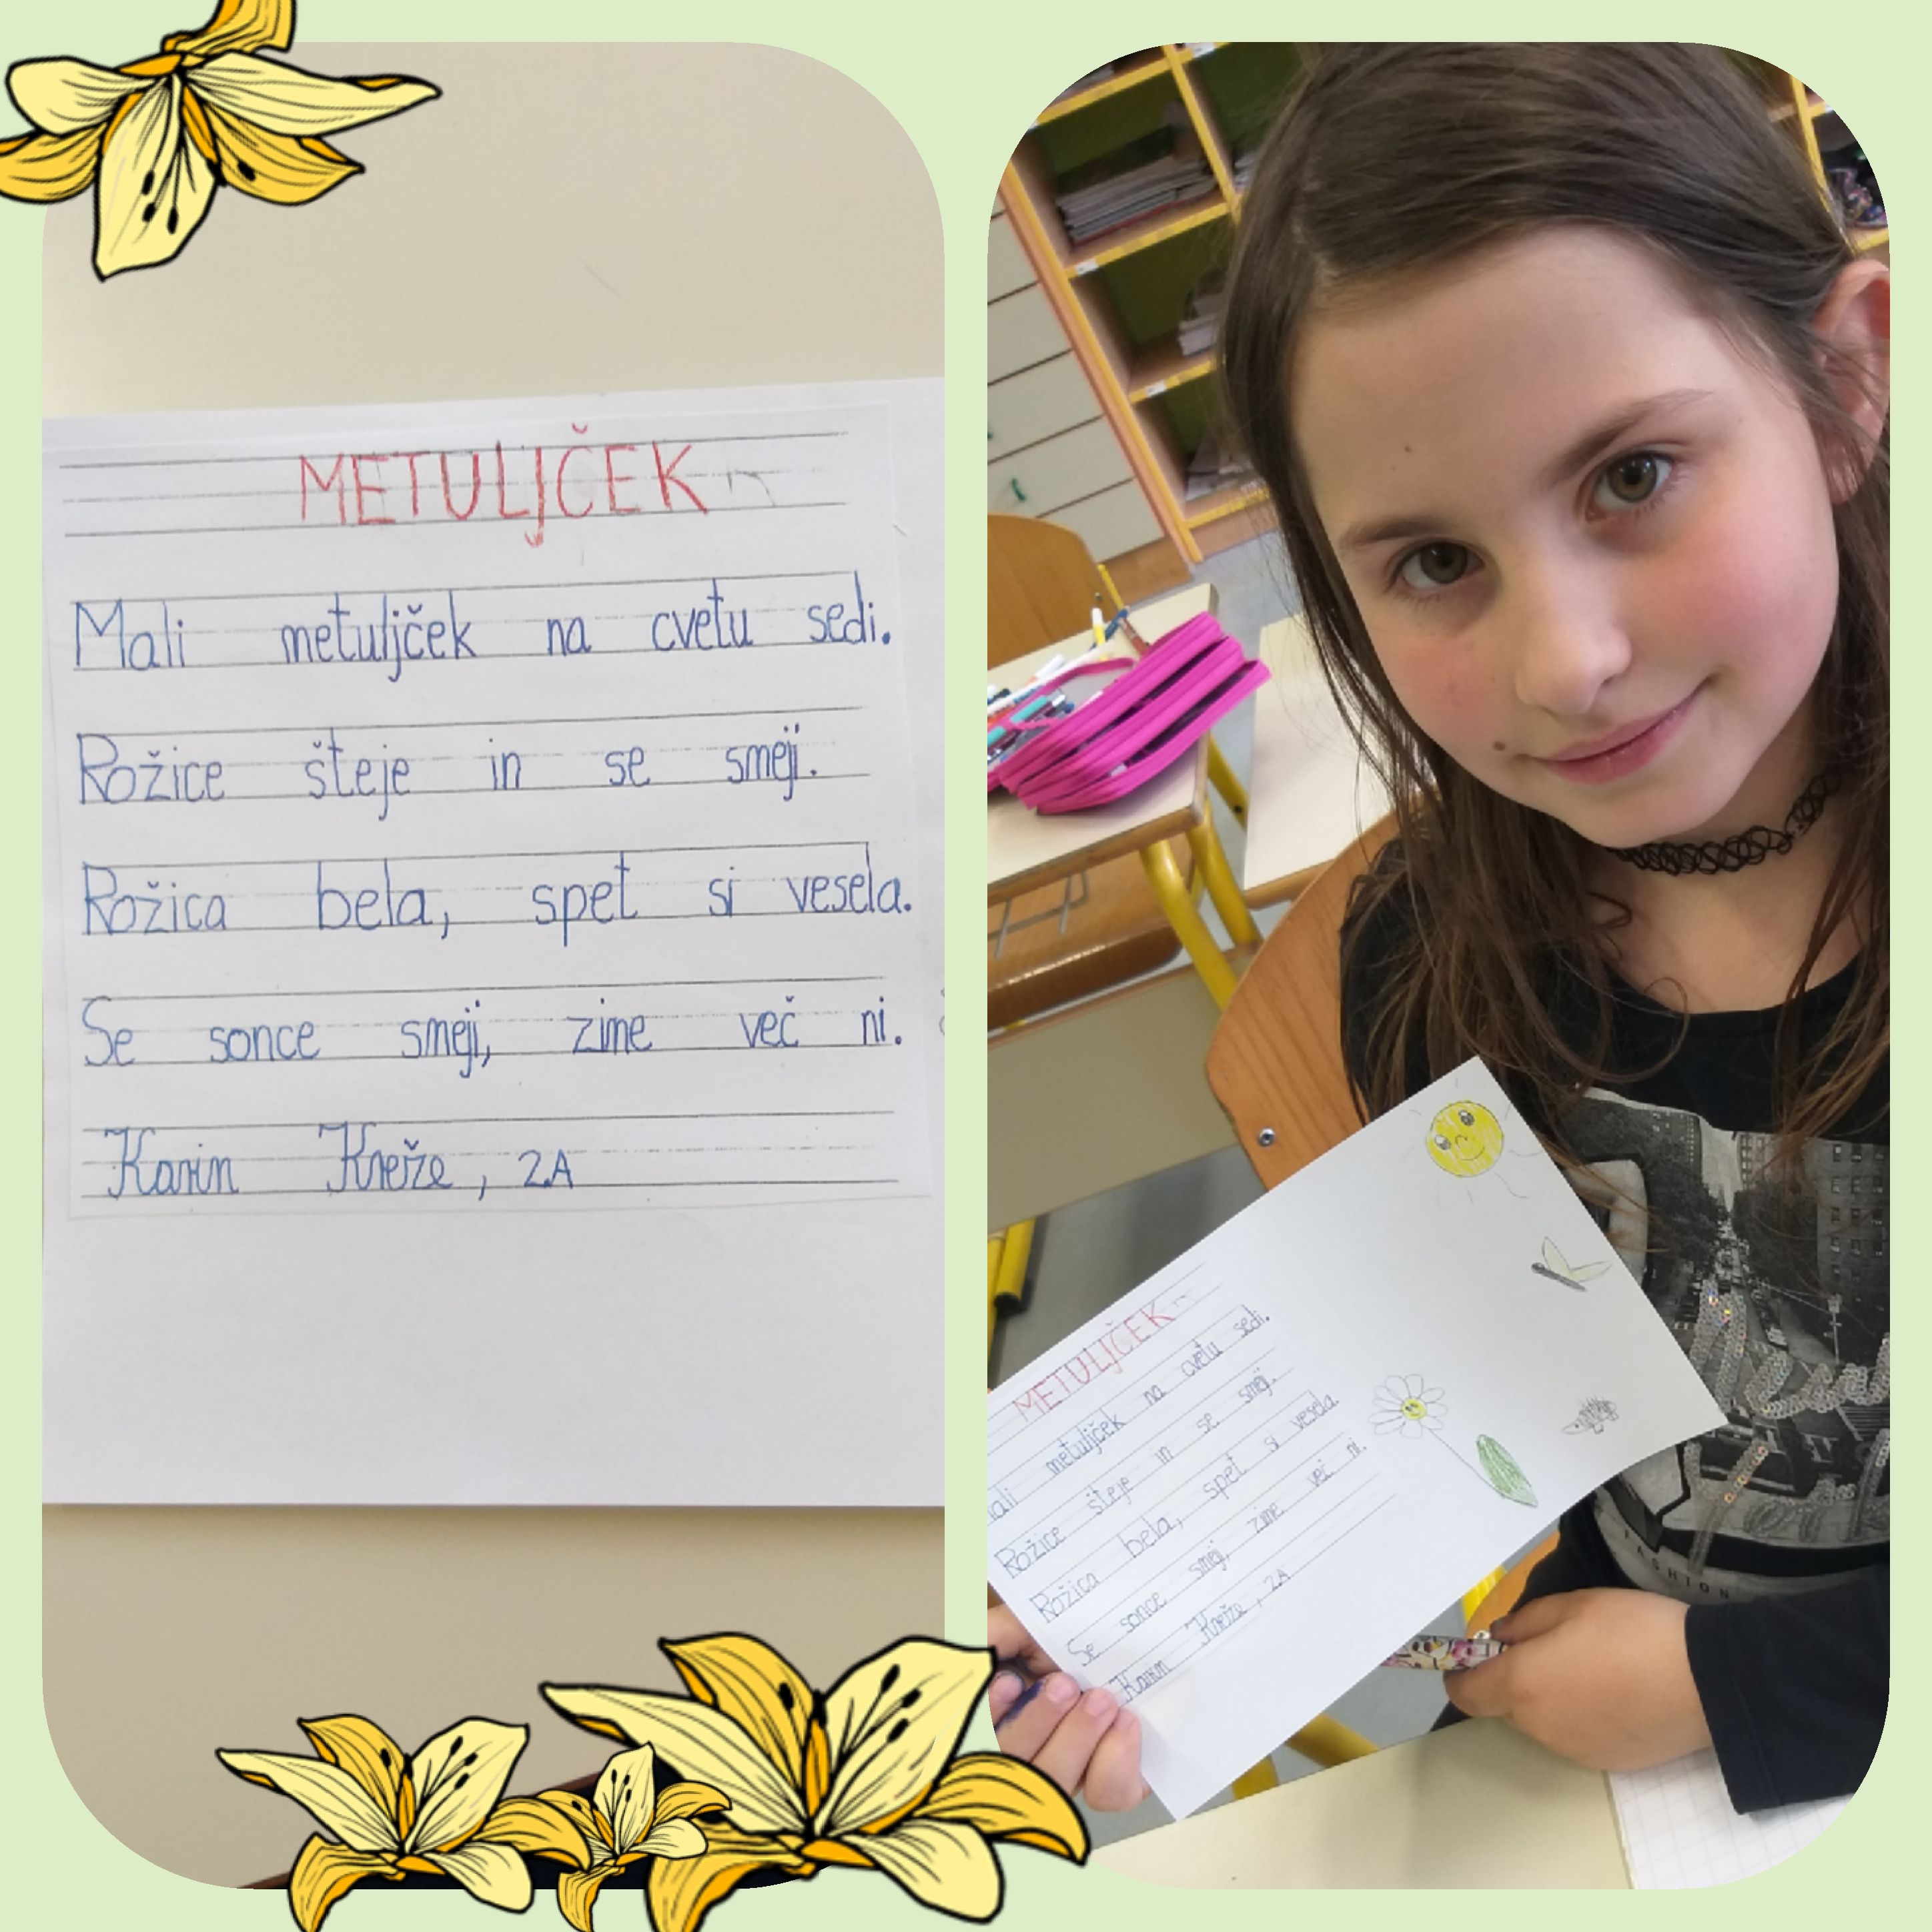 METULJČEK
Mali metuljček na cvetu sedi.
Rožice šteje in se smeji.
Rožica bela, spet si vesela.
Se sonce smeji, zime več ni.
Karin Kneže, 2.A
METULJČEK
metuljček na cvetu sedi.
Rožice šteje in se smeji.
Rožica bela, spet si vesela.
Se sonce smeji, zime več ni.
Karin Kneže, 2.A
FASHION